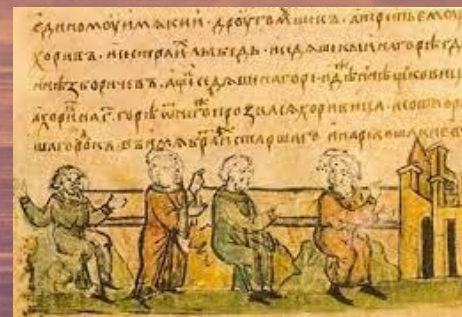 единомоу имѧ кии · дроугом щекъ · атретьемоу
хоривъ · исестра и лыбедь · иседѧше кии нагоре гд
ннѣ зборичевъ · а седѧше нагоре · гдѣ ннѣ щековиц
ахори на г҃ · горѣ ѿ него прозвасѧ хоривица · исотвор
ша городокъ · въ имѧ бра старшаго инарекоша киев